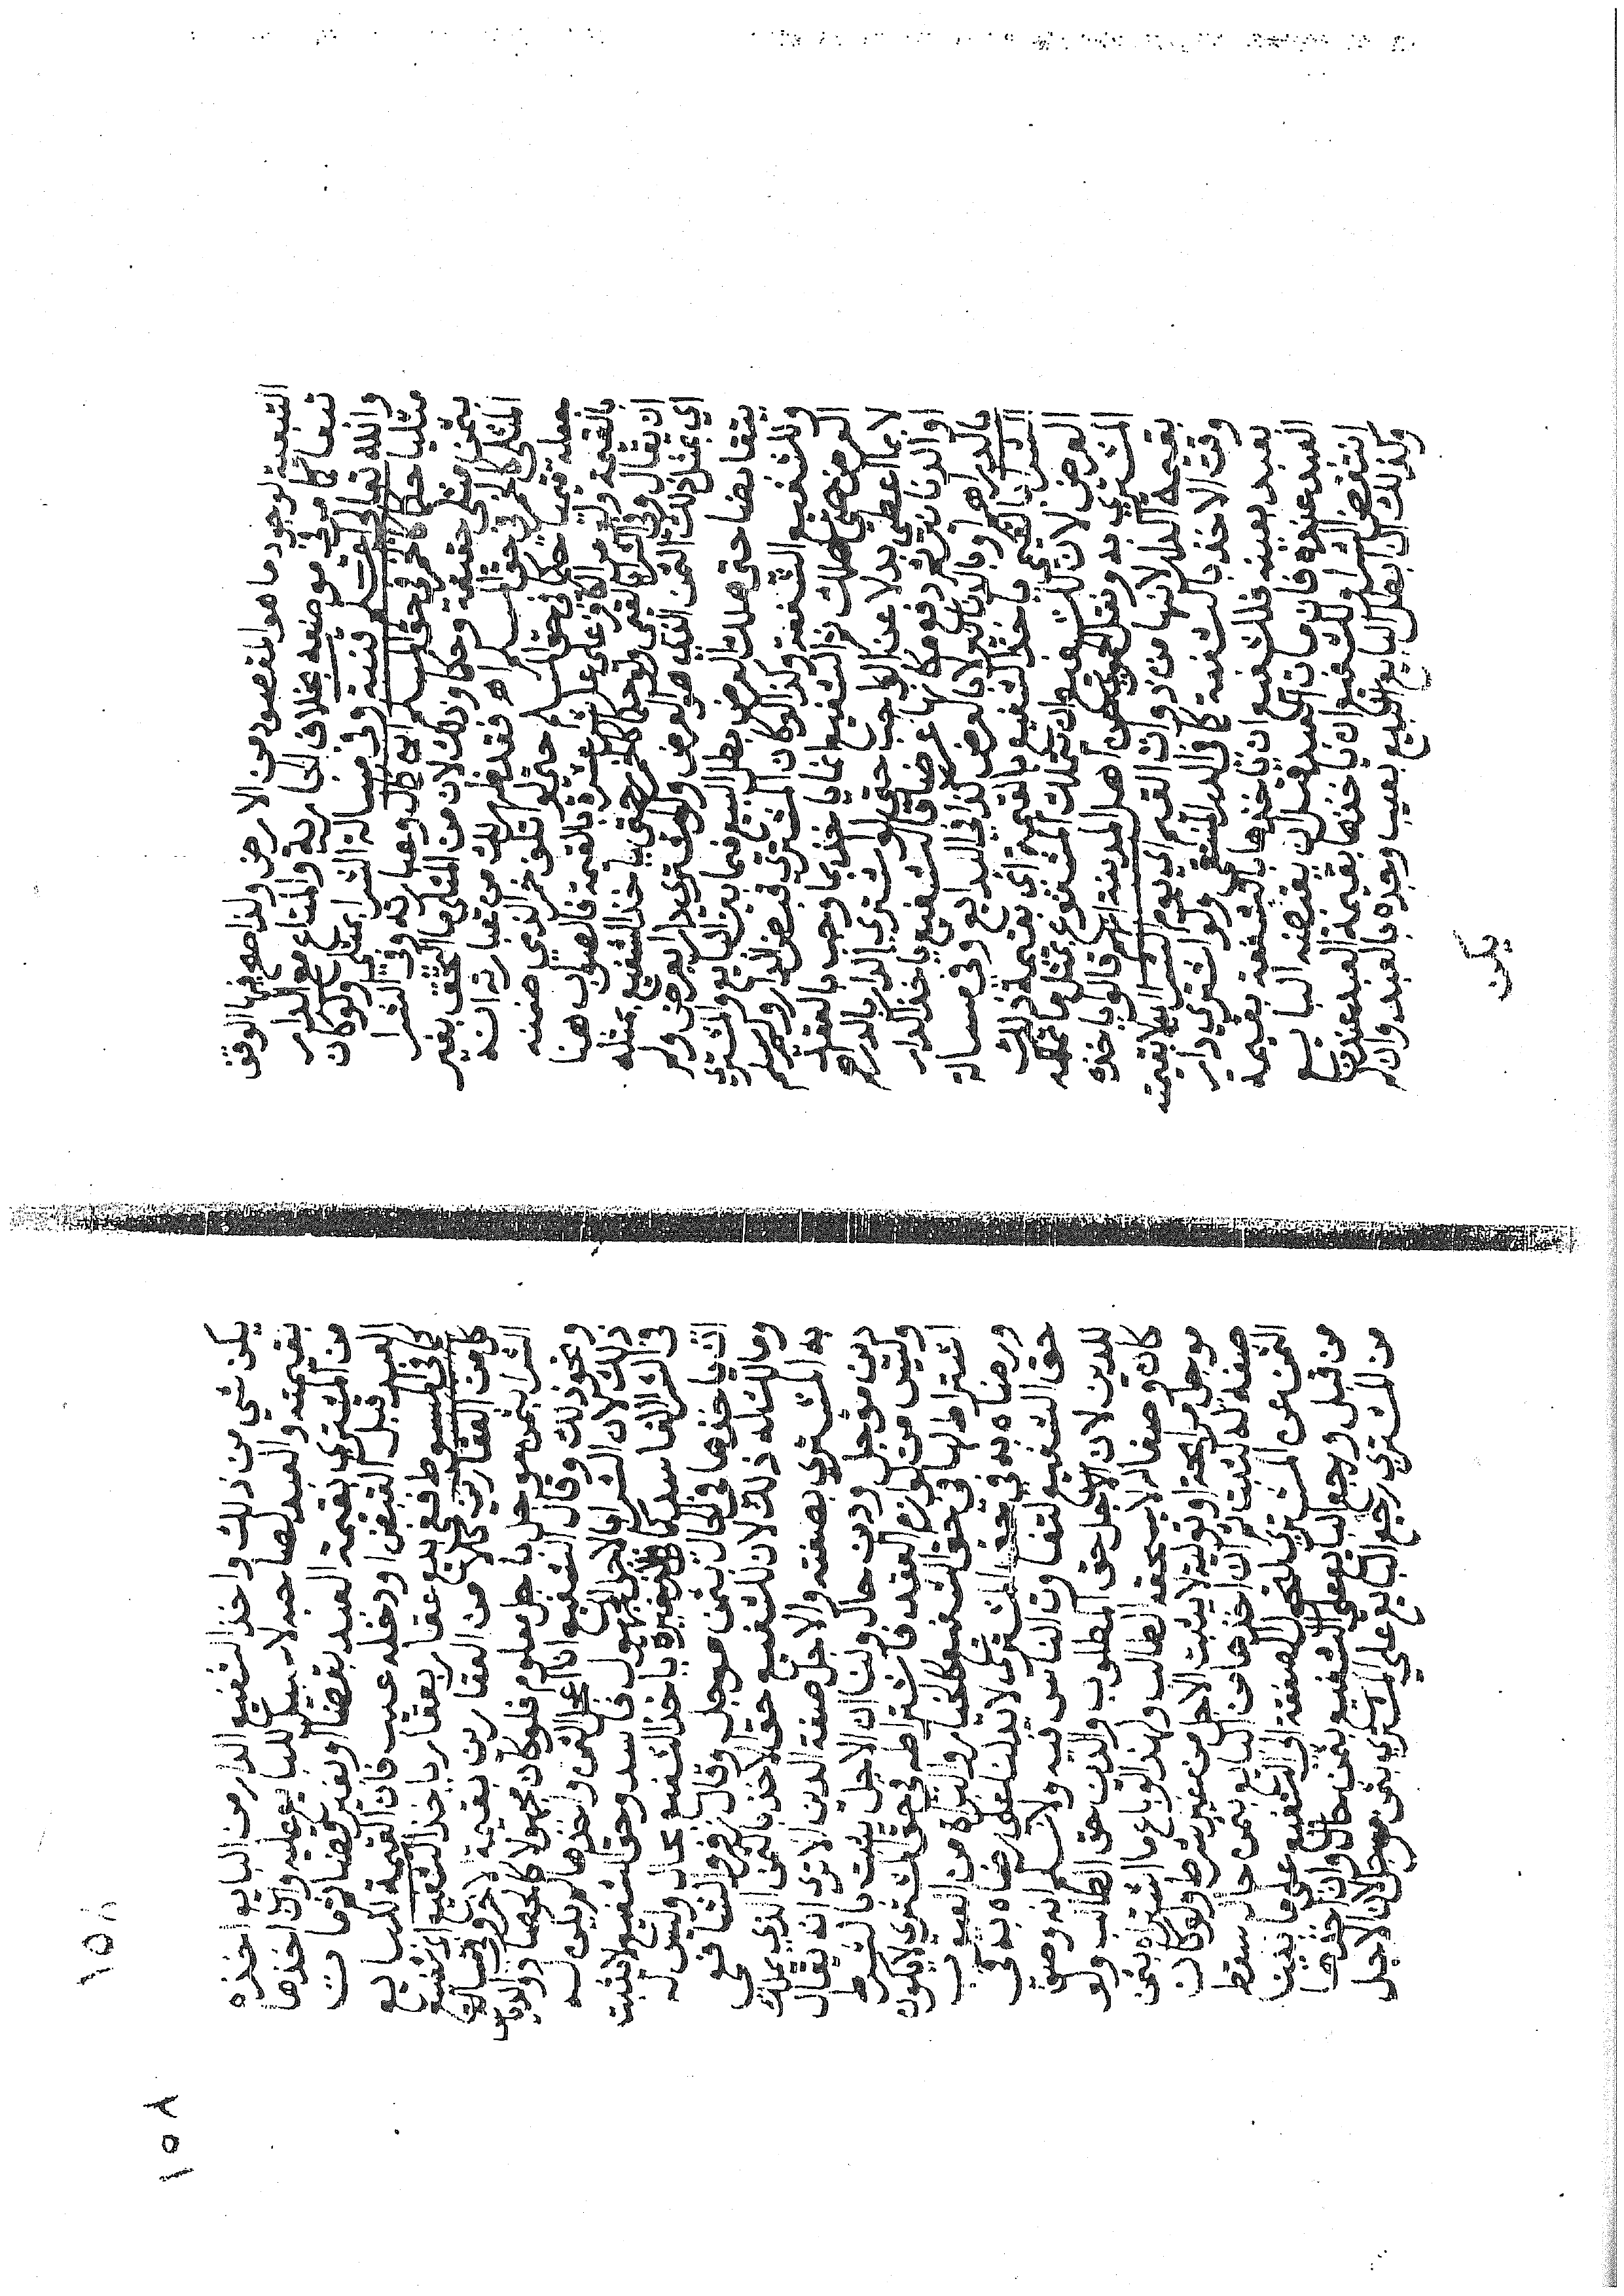 التبعية لوجود ما هو المقصود من الارض ولذا صح فيها الوقف
تبعا كما مر في موضعه بخلاف الجارية والمتاع مع الدار
والله تعالى الموفق قنية وفي مسالة الشرا بمثلي ولو كان
مثليا حكما كالخمر في حق المسلم ابن كمال وعبارته وفي الشرا
بثمن مثلي حقيقة وحكما وذلك لان من المثلي ما التحق بغير
المثلي كالخمر في حق المسلم اه فقد ظهر لك من عبارته انه
جعله قيميا حكما في حق المسلم حتى لو اتلف خمر الذمي ضمنه
بالقيمة بالقيمة فالصواب هنا
ان يقال وفي الشرا بالقيمي ولو حكما كالخمر حتى ياخذ الشفيع بمثله
اي بمثل ذلك الثمن الذي هو العرض ولو اشترى دارا بعرض ولم
يتقابضا حتى هلك العرض بطل البيع فيما بين البايع والمشتري
وللشفيع الشفعة وكذا لو كان المشتري قبض الدار ولم يسلم
العرض حتى هلك ثم الشفيع انما ياخذ بما وجب بالعقد
لا بما اعطى بدلا عن الواجب حتى لو اشترى الدار بالدراهم
او الدنانير ثم دفع مكانها عرضا فالشفيع ياخذ الدار
بالدراهم او بالدنانير لا بالعرض كذا في البدايع وفي مسالة
الشرا بالقيمي ياخذ الشفيع بالقيمة اي بقيمة ذلك
العرض لان للشفيع ان يتملك المشفوع بمثل ما تملكه
المشتري به ونقل عن بعض اهل المدينة انهم قالوا ياخذه
بقيمة الدار لانها من ذوات القيم اي يوم الشرا لا بقيمته
وقت الاخذ بالشفعة كما في الدر المنتقى ولو اشترى دار
بعبد بعينه فللشفيع ان ياخذها بالشفعة بقيمة
العبد عندنا فان مات العبد قبل ان يقبضه البايع
انتقض الشرا وللشفيع ان ياخذها بقيمة العبد عندنا
وكذلك ان بطل البايع البيع بعيب وجده بالعبد وان لم
يكن
١٥٨
١٥٨
يكن شي من ذلك واخذ الشفيع الدار من البايع اخذه
بقيمته والعبد لصاحبه لا سبيل للبايع عليه وان اخذها
من المشتري بقيمة العبد بقضا او بغير قضا ثم مات
العبد قبل القبض او دخله عيب فان القيمة للبايع
كما في المبسوط ففي بيع عقار بعقار ياخذ الشفيع اي شفيع
كل من العقارين كلا من العقارين بقيمة الاخر وفي مسالة
الشرا بثمن موجل باجل معلوم فلو كان مجهولا كالحصاد والدياس
ونحو ذلك وقال الشفيع انا اعجل الثمن واخذها لم يكن له
ذلك لان الشرا بالاجل المجهول فاسد وحق الشفيع لا يثبت
في الشرا الفاسد كما في الذخيرة ياخذ الشفيع بحال وليس له
ان ياخذها في الحال بثمن موجل وقال زفر والشافعي
ومالك له ذلك لان للشفيع حق الاخذ بالثمن الذي يملك
به المشتري بصفته والاجل صفة الدين الا ترى انه يقال
دين موجل ودين حال ولنا ان الاجل يثبت بالشرط
وليس من لوازم العقد فاشتراطه في حق المشتري لا يكون
اشتراطا في حق الشفيع كالخيار والبراة من العيوب
ورضاه به في حق المشتري لا يدل على رضاه به في
حق الشفيع لتفاوت الناس فيه ولا نسلم انه وصف
للدين لان الاجل حق المطلوب والدين حق الطالب ولو
كان وصفا له لاستحقه الطالب ولهذا لو باع ما اشتراه بثمن
موجل مرابحة او تولية لا يثبت الاجل من غير شرط ولو كان
صفة له لثبت ثم ان اخذها من البايع بثمن حال سقط
الثمن عن المشتري لتحول الصفقة الى الشفيع على ما بينا
من قبل ورجع البايع على الشفيع بثمن حال وان اخذها
من المشتري رجع البايع على المشتري بثمن موجل لان الاجل